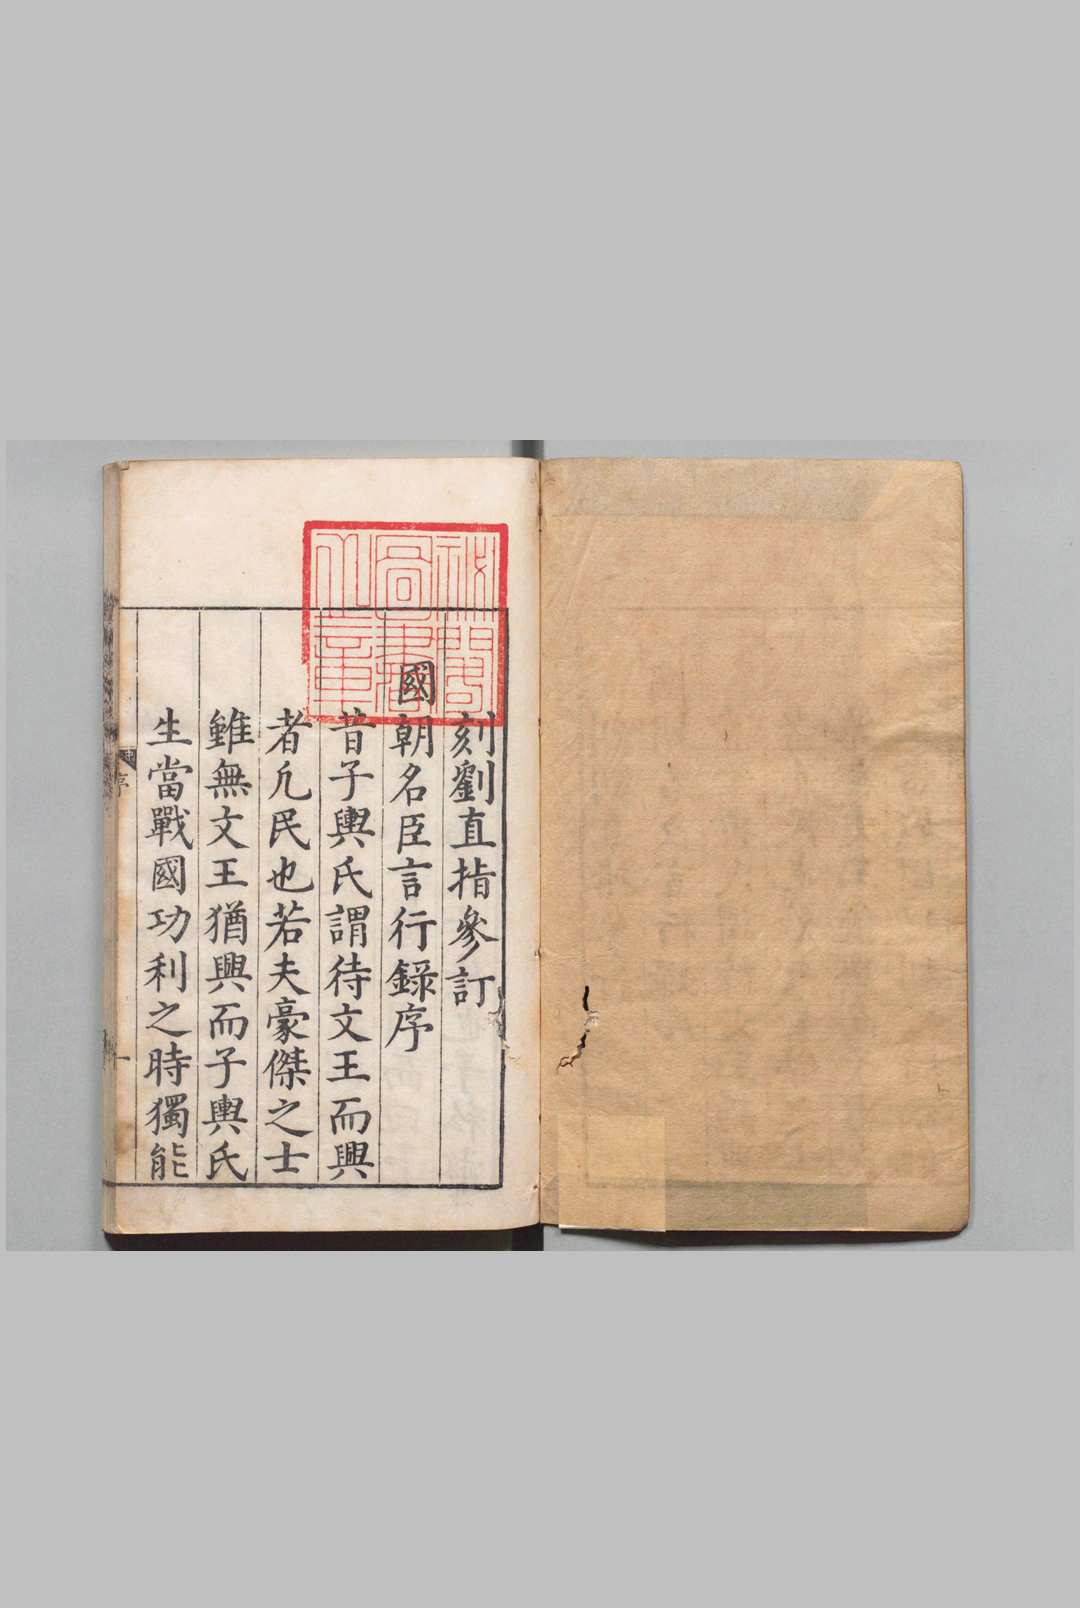 刻劉直指參訂
國朝名臣言行錄序
昔子輿氏謂待文王而興
者凡民也若夫豪傑之士
雖無文王猶興而子輿氏
生當戰國功利之時獨能
序
一
祕閣
圖書
之章